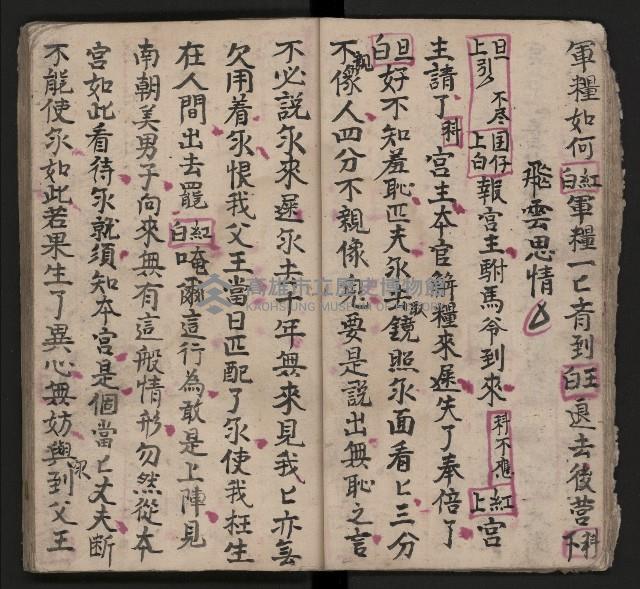 軍糧如何紅白軍糧一匕育到王白退去後营科下
飛雲思情
旦上引不尽囯仔上白報宮主駙馬爷到來科不應紅上宮
主請了科宮主本官觧糧來遲失了奉倍了
旦白好不知羞恥匹夫尔去取鏡照尔面看匕三分
不像人四分不親像鬼要是說出無恥之言
不必説尔來遲尔去千年無來見我匕亦無
欠用着尔恨我父王當日匹配了尔使我枉生
在人間出去罷紅白唵爾這行為敢是上陣見
南朝美男子向來無有這般情形勿然從本
宮如此看待尔就須知本宮是個當匕丈夫断
不能使尔如此若果生了異心無妨與尔到父王
高雄市立歷史博物館
KAOHSIUNG MUSEUM OF HISTORY